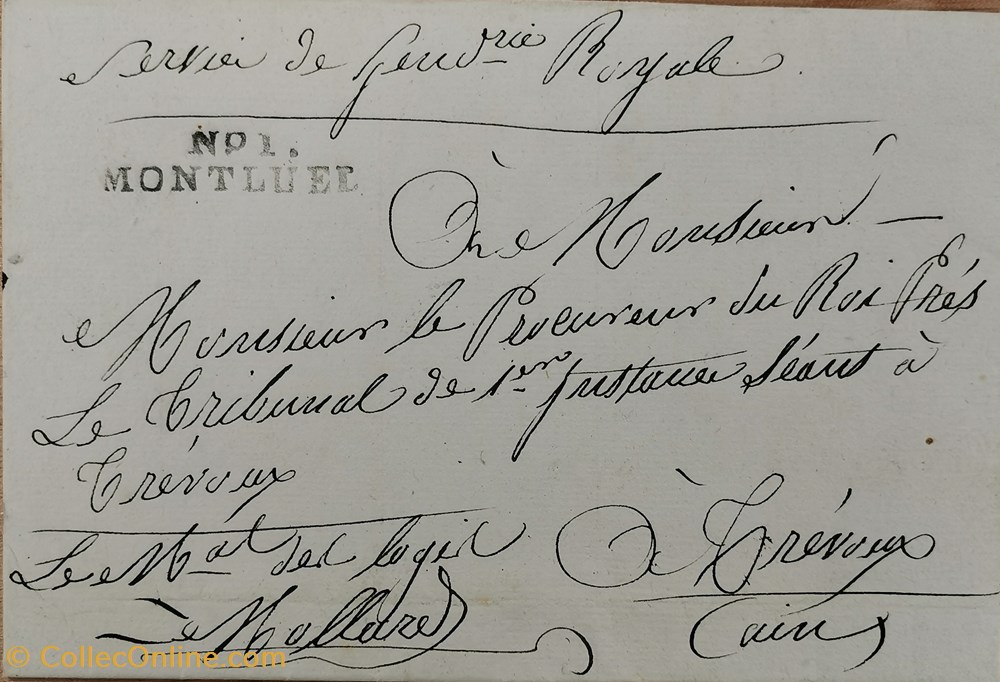 Service de Gend.rie Royale.
No 1.
MONTLUEL
À Monsieur
Monsieur le Procureur du Roi Prés
Le Tribunal de 1ere Instance Séant à
Trévoux
Le Mal des logis
Mollard
À Trévoux
(ain)
© CollecOnline.com